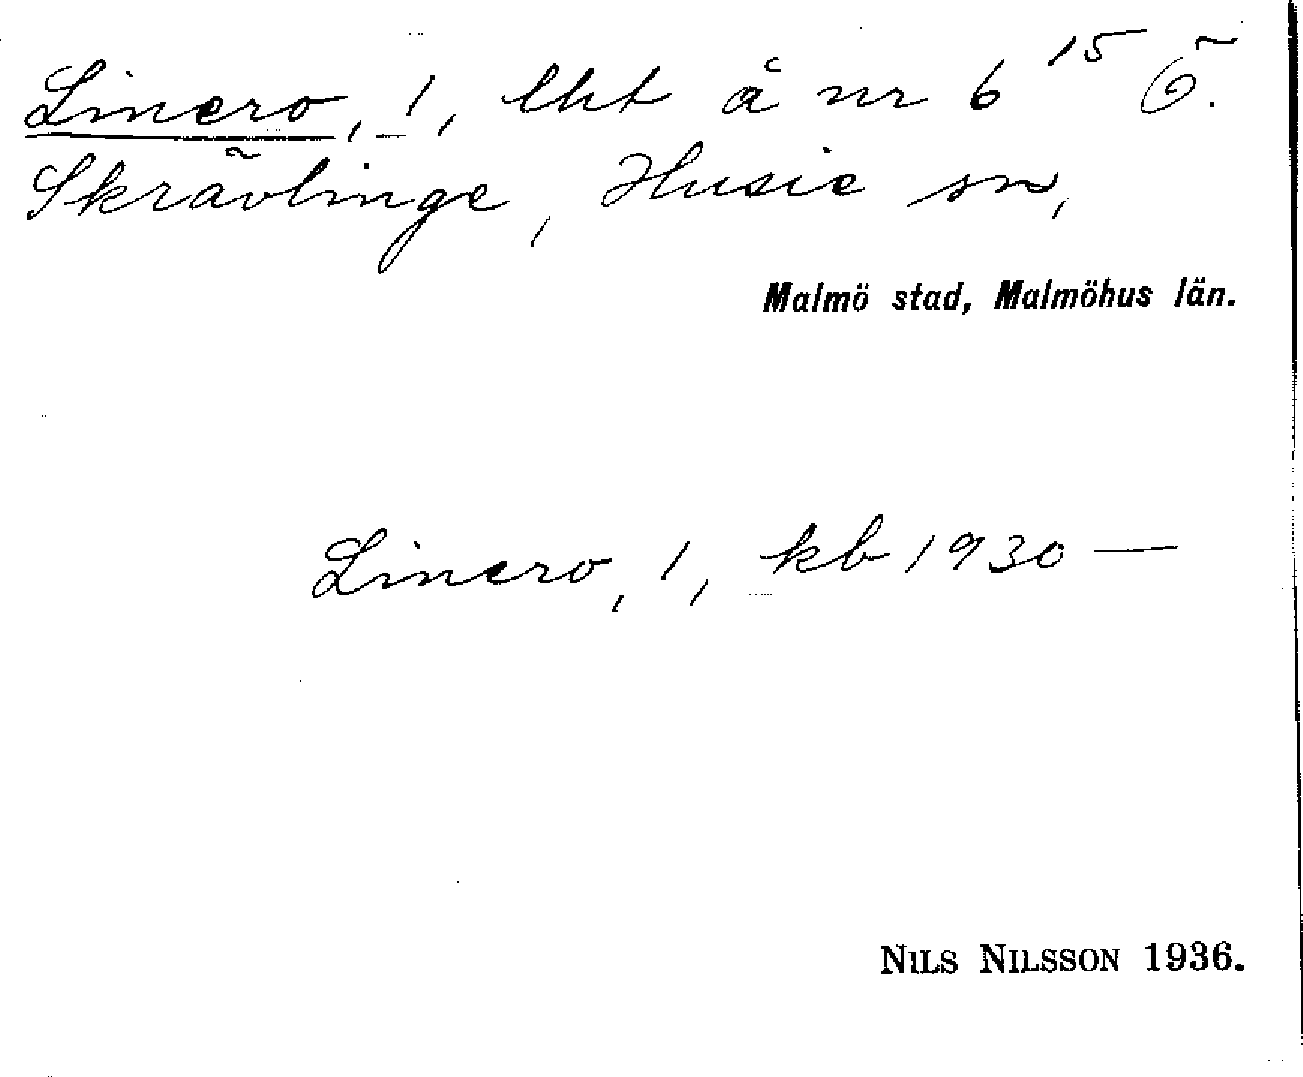 Linero, 1, lht å nr 6¹⁵ Ö.
Skrävlinge, Husie sn,
Malmö stad, Malmöhus län.
Linero, 1, kb 1930 —
NILS NILSSON 1936.